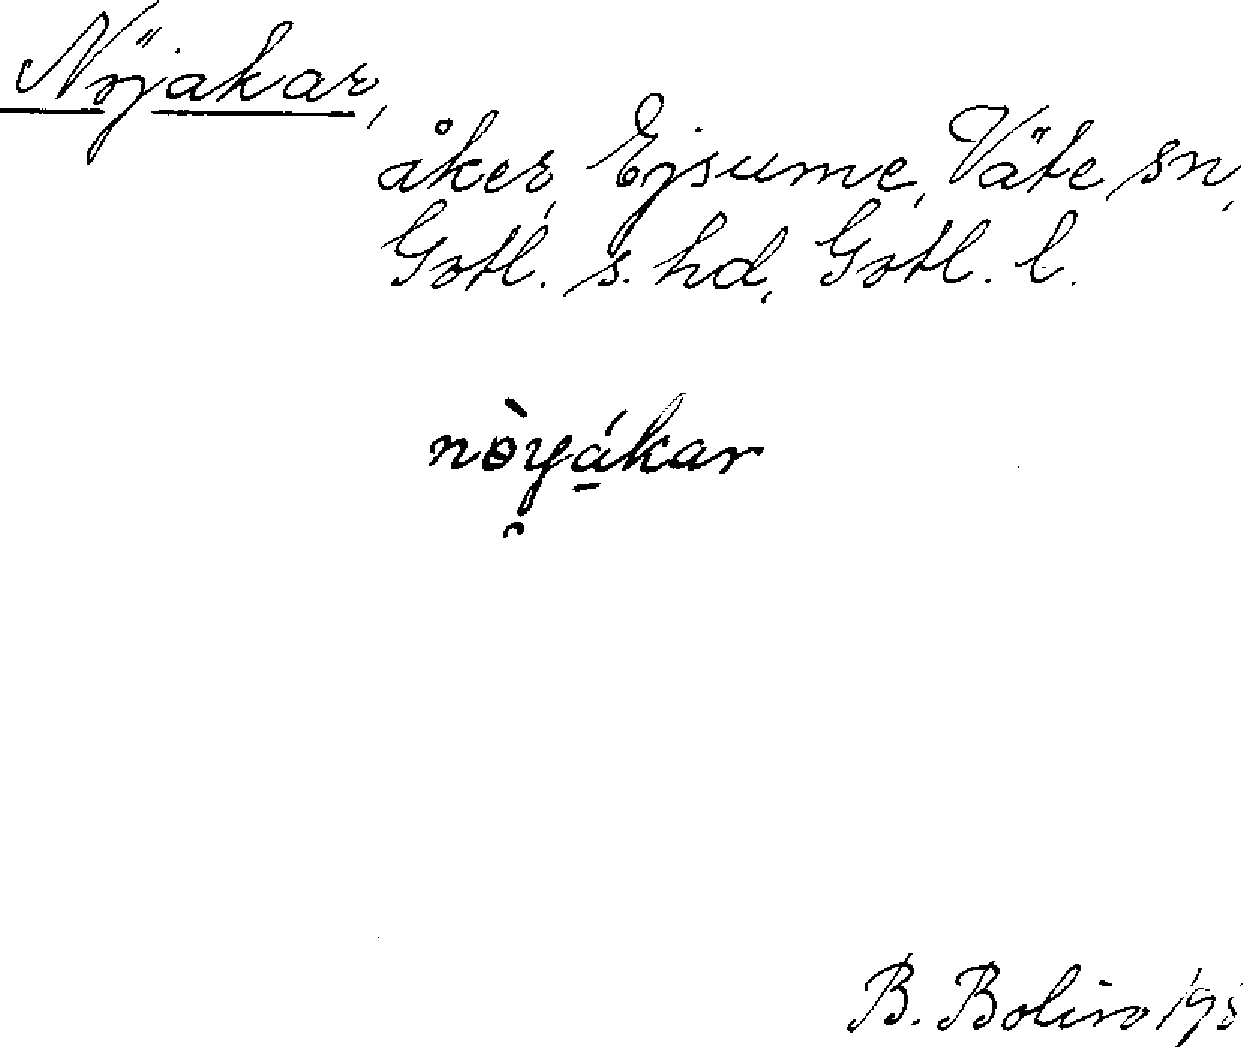 Nöjakar,
åker, Ejsume, Väte sn,
Gotl. s. hd, Gotl. l.
nòyákar
B. Bolin